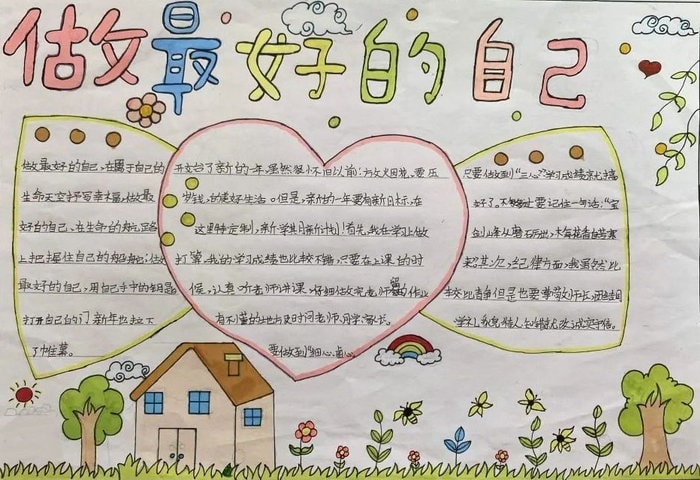 做最好的自己
做最好的自己,在属于自己的
生命天空抒写幸福,做最
好的自己,在生命的航
上把握住自己的船舵;做
最好的自己,用自己手中的钥匙
打开自己的门新年也拉下
了帷幕。
开始了新的一年,虽然祭不旧以前:放火因花,要压
岁钱,的美好生活。但是,新的一年要有新目标,在
这里特定制,新学期新计划!首先,我在学习上做
打算,我的学习成绩也比较不错,只要在上课的时
候,认真听老师讲课,仔细做完老师留的作业
有不懂的地方及时问老师,同学,家长。
要做到"细心,虚心,
只要做到"三心"学习成绩就提
好了。不够要记住一句话:"宝
剑锋从磨砺出,梅花香自苦寒
来。其次,纪律方面,我虽然比
较比静但是也要尊敬师长,团结同
学礼貌待人,知错就改诚实守信。